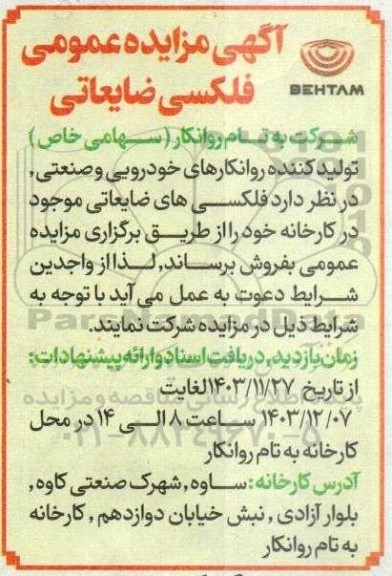 آگهی مزایده عمومی
فلکسی ضایعاتی
BEHTAM
شرکت به تام روانکار (سهامی خاص)
تولید کننده روانکارهای خودرویی و صنعتی,
در نظر دارد فلکسی های ضایعاتی موجود
در کارخانه خود را از طریق برگزاری مزایده
عمومی بفروش برساند, لذا از واجدین
شرایط دعوت به عمل می آید با توجه به
شرایط ذیل در مزایده شرکت نمایند.
زمان بازدید, دریافت اسناد و ارائه پیشنهادات:
از تاریخ ۱۴۰۳/۱۱/۲۷ لغایت
۱۴۰۳/۱۲/۰۷ ساعت ۸ الی ۱۴ در محل
کارخانه به تام روانکار
آدرس کارخانه: ساوه, شهرک صنعتی کاوه,
بلوار آزادی, نبش خیابان دوازدهم, کارخانه
به تام روانکار
ParsNamadData
پایگاه اطلاع رسانی مناقصه و مزایده
۰۲۱-۸۸۳۴۹۶۷۰-۵